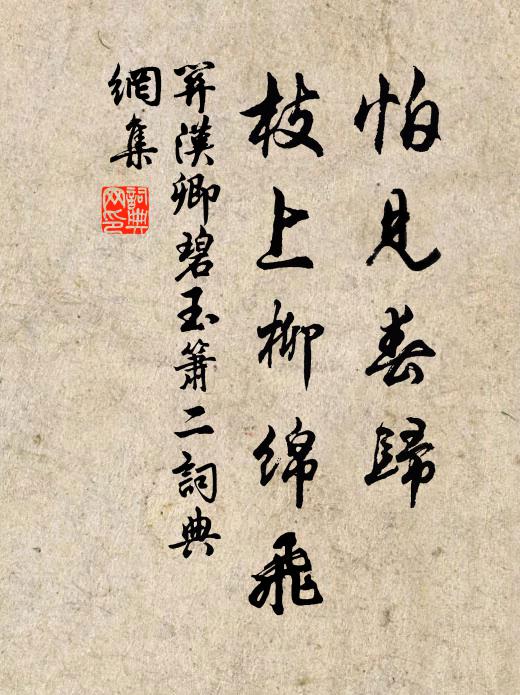 怕見春歸
枝上柳綿飛
關漢卿碧玉簫二詞典
網集
詞典網印